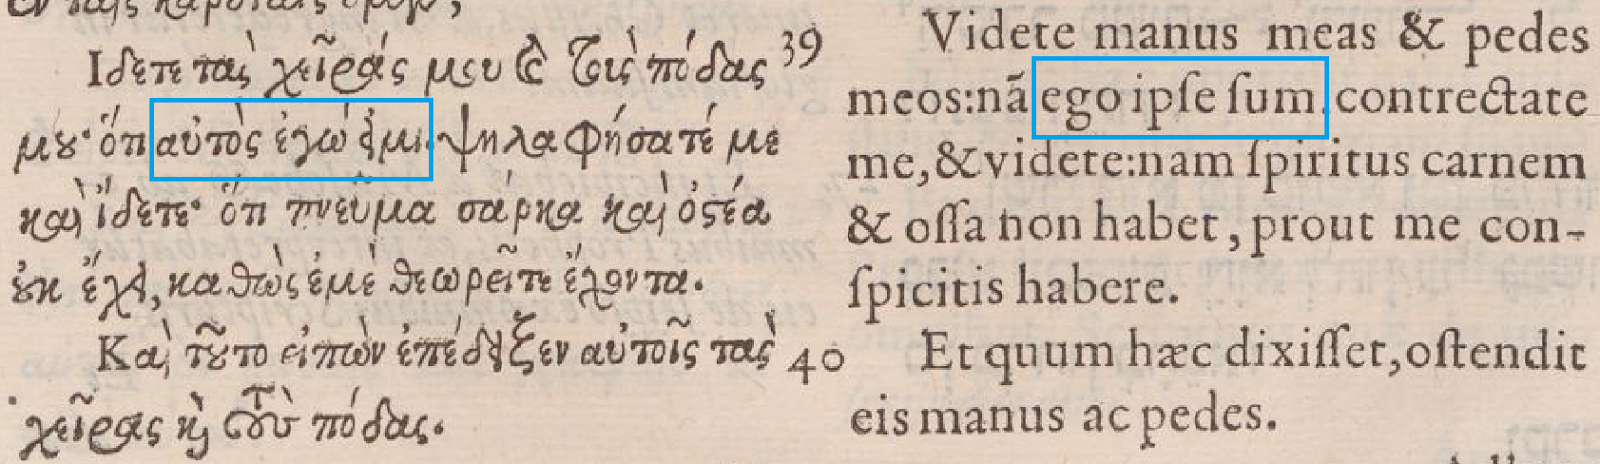 ἐν ταῖς καρδίαις ὑμῶν;
Ιδετε τὰς χεῖράς μου καὶ τοὺς πόδας 39
μου· ὅτι αὐτὸς ἐγώ εἰμι. ψηλαφήσατέ με
καὶ ἴδετε· ὅτι πνεῦμα σάρκα καὶ ὀστέα
οὐκ ἔχει, καθὼς ἐμὲ θεωρεῖτε ἔχοντα.
Καὶ τοῦτο εἰπὼν ἐπέδειξεν αὐτοῖς τὰς 40
χεῖρας καὶ τοὺς πόδας.
Videte manus meas & pedes
meos:nã ego ipſe ſum. contrectate
me,& videte:nam ſpiritus carnem
& oſſa non habet, prout me con-
ſpicitis habere.
Et quum hæc dixiſſet, oſtendit
eis manus ac pedes.